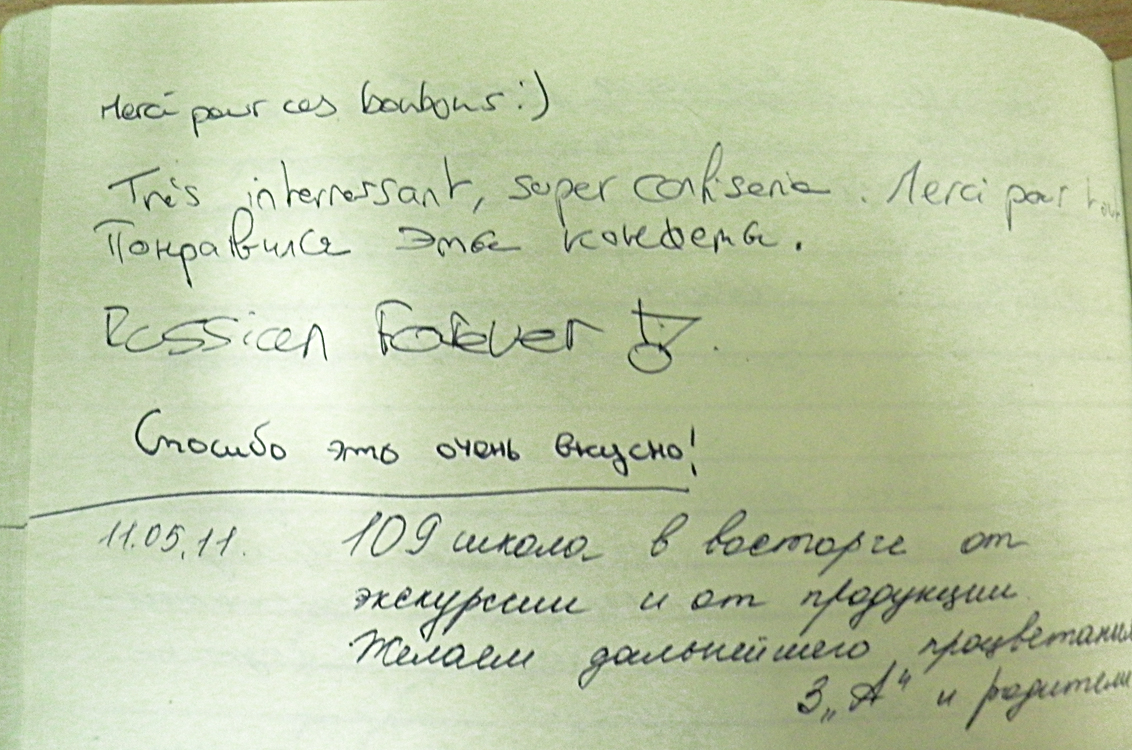 Merci pour ces bonbons :)
Très interressant, super confiserie. Merci pour tout
Понравился эта конфета.
Russian Forever
Спосибо это очень вкусно!
11.05.11. 109 школа в восторге от
экскурсии и от продукции.
Желаем дальнейшего процветания
3 „А“ и родители